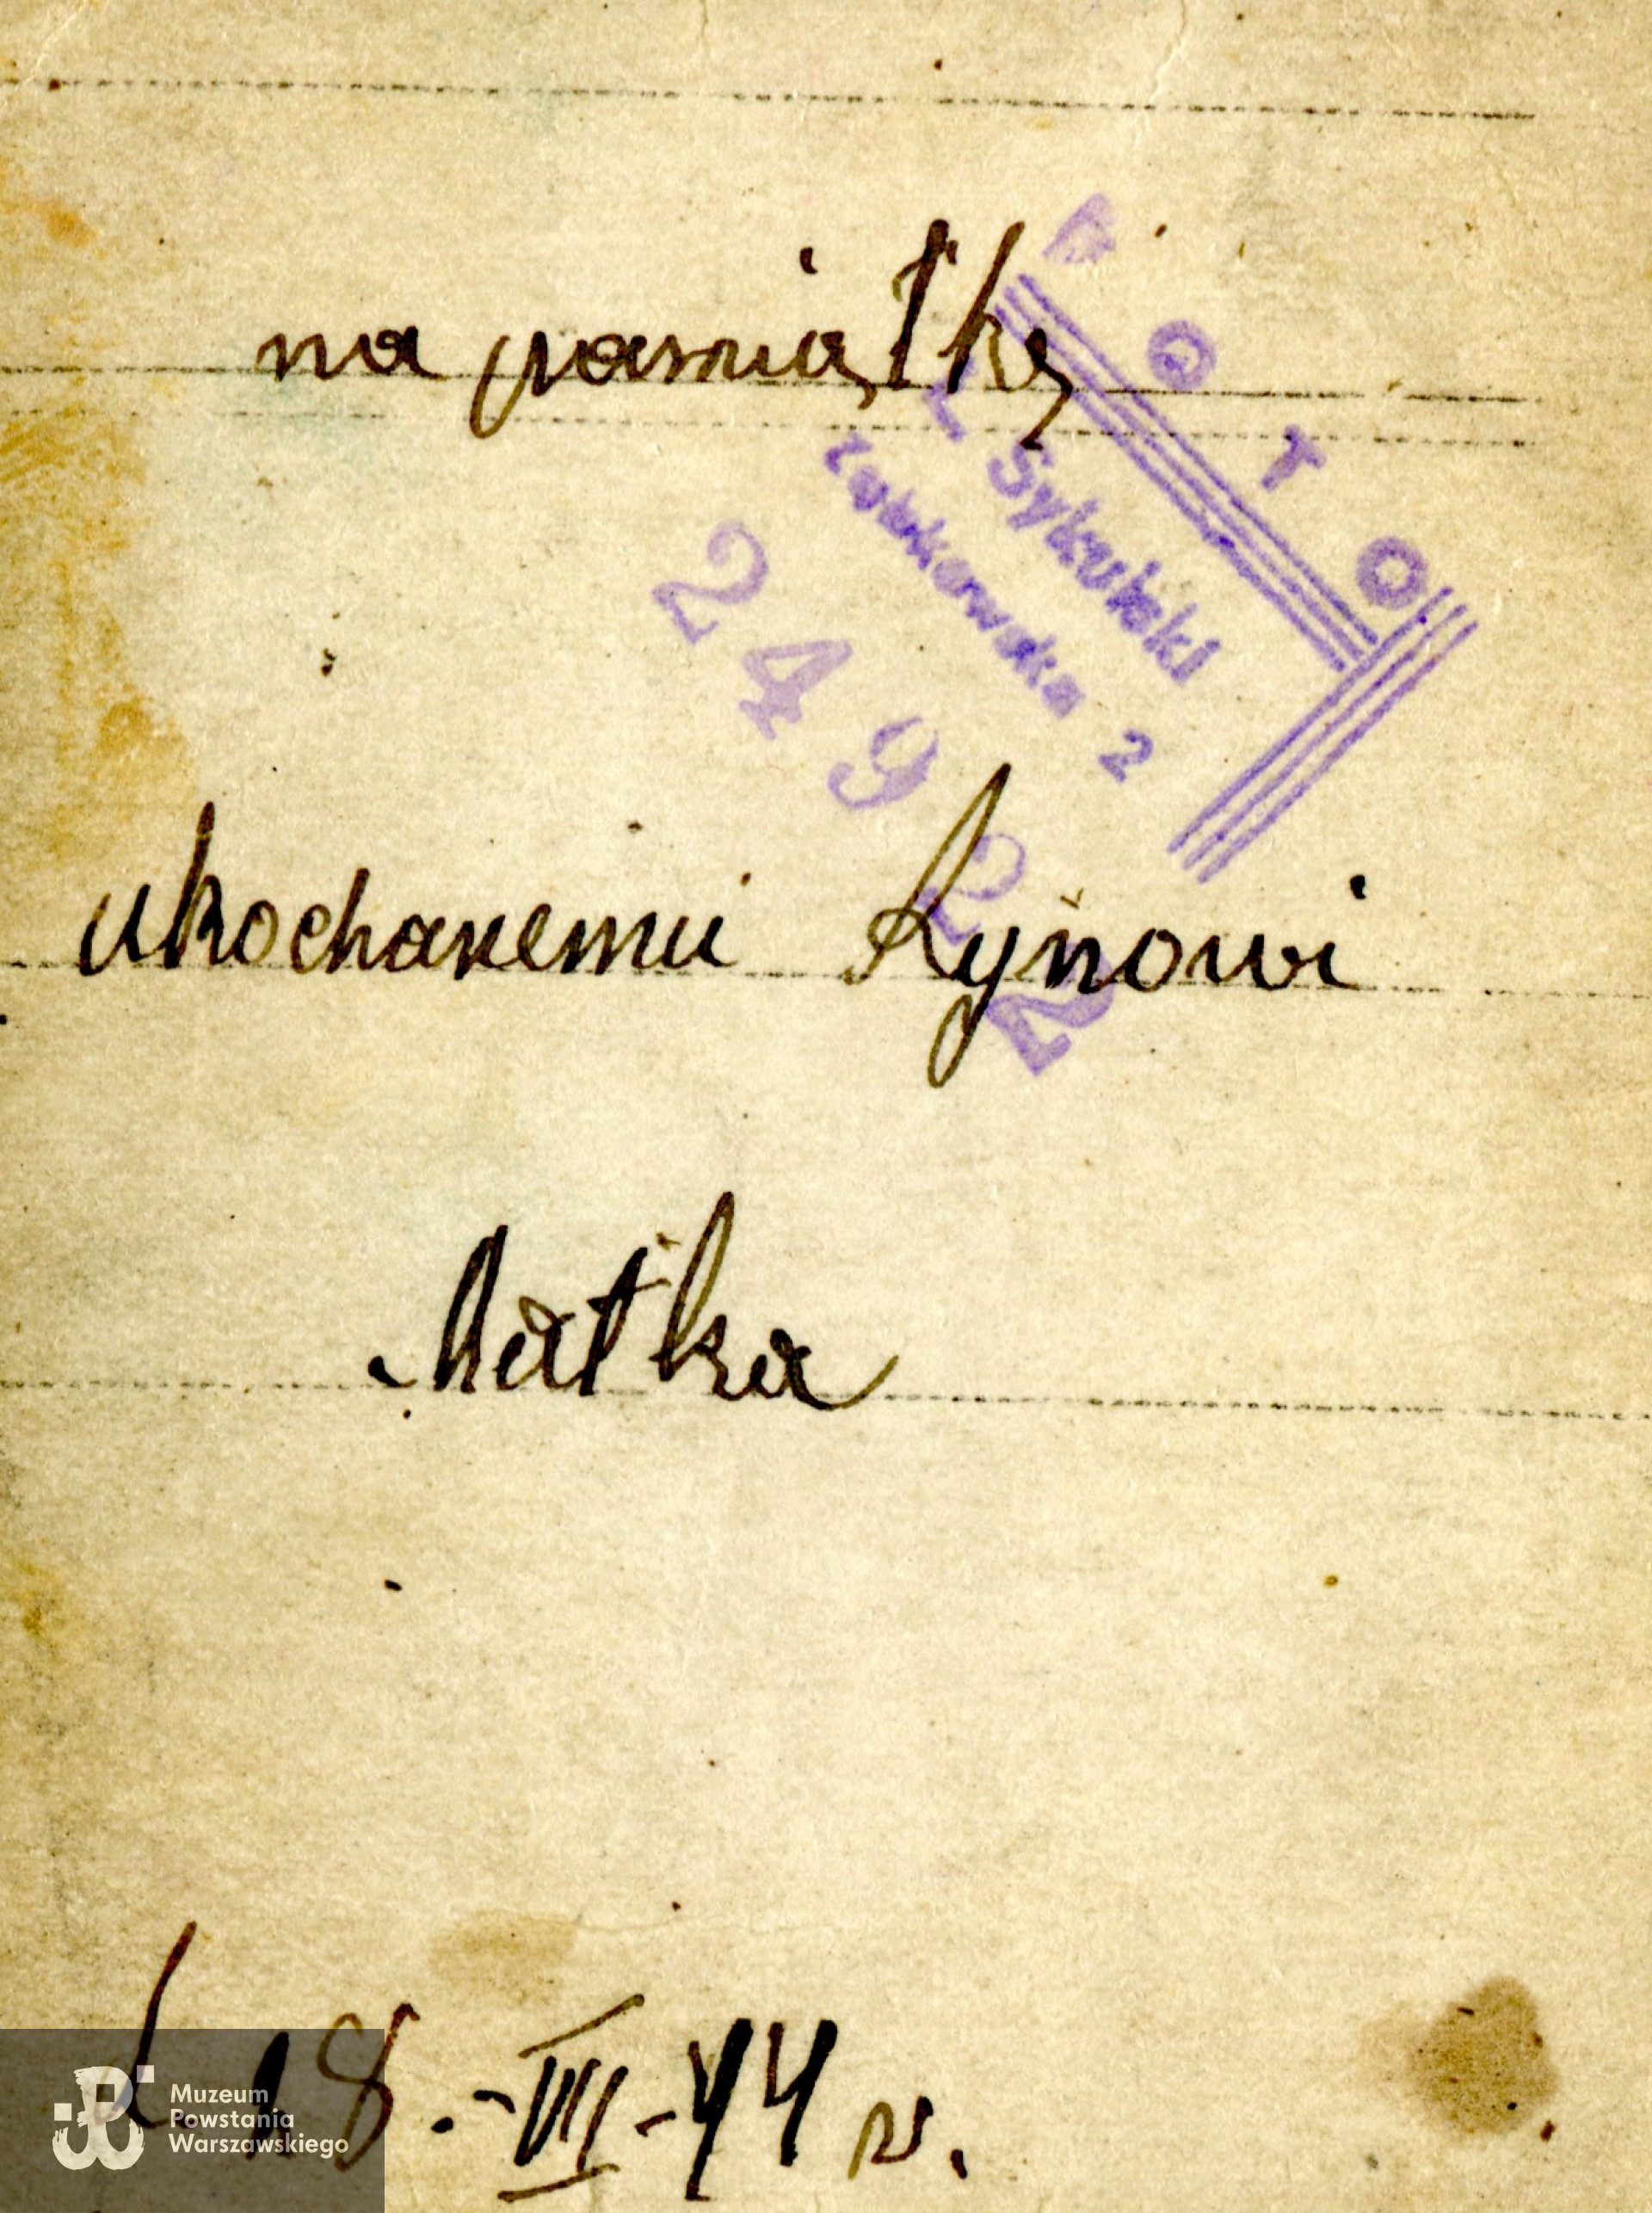 FOTO
L Sykulski
Ząbkowska 2
24922
na pamiątkę
ukochanemu Synowi
Matka
d 18.-VII-44 r.
Muzeum
Powstania
Warszawskiego